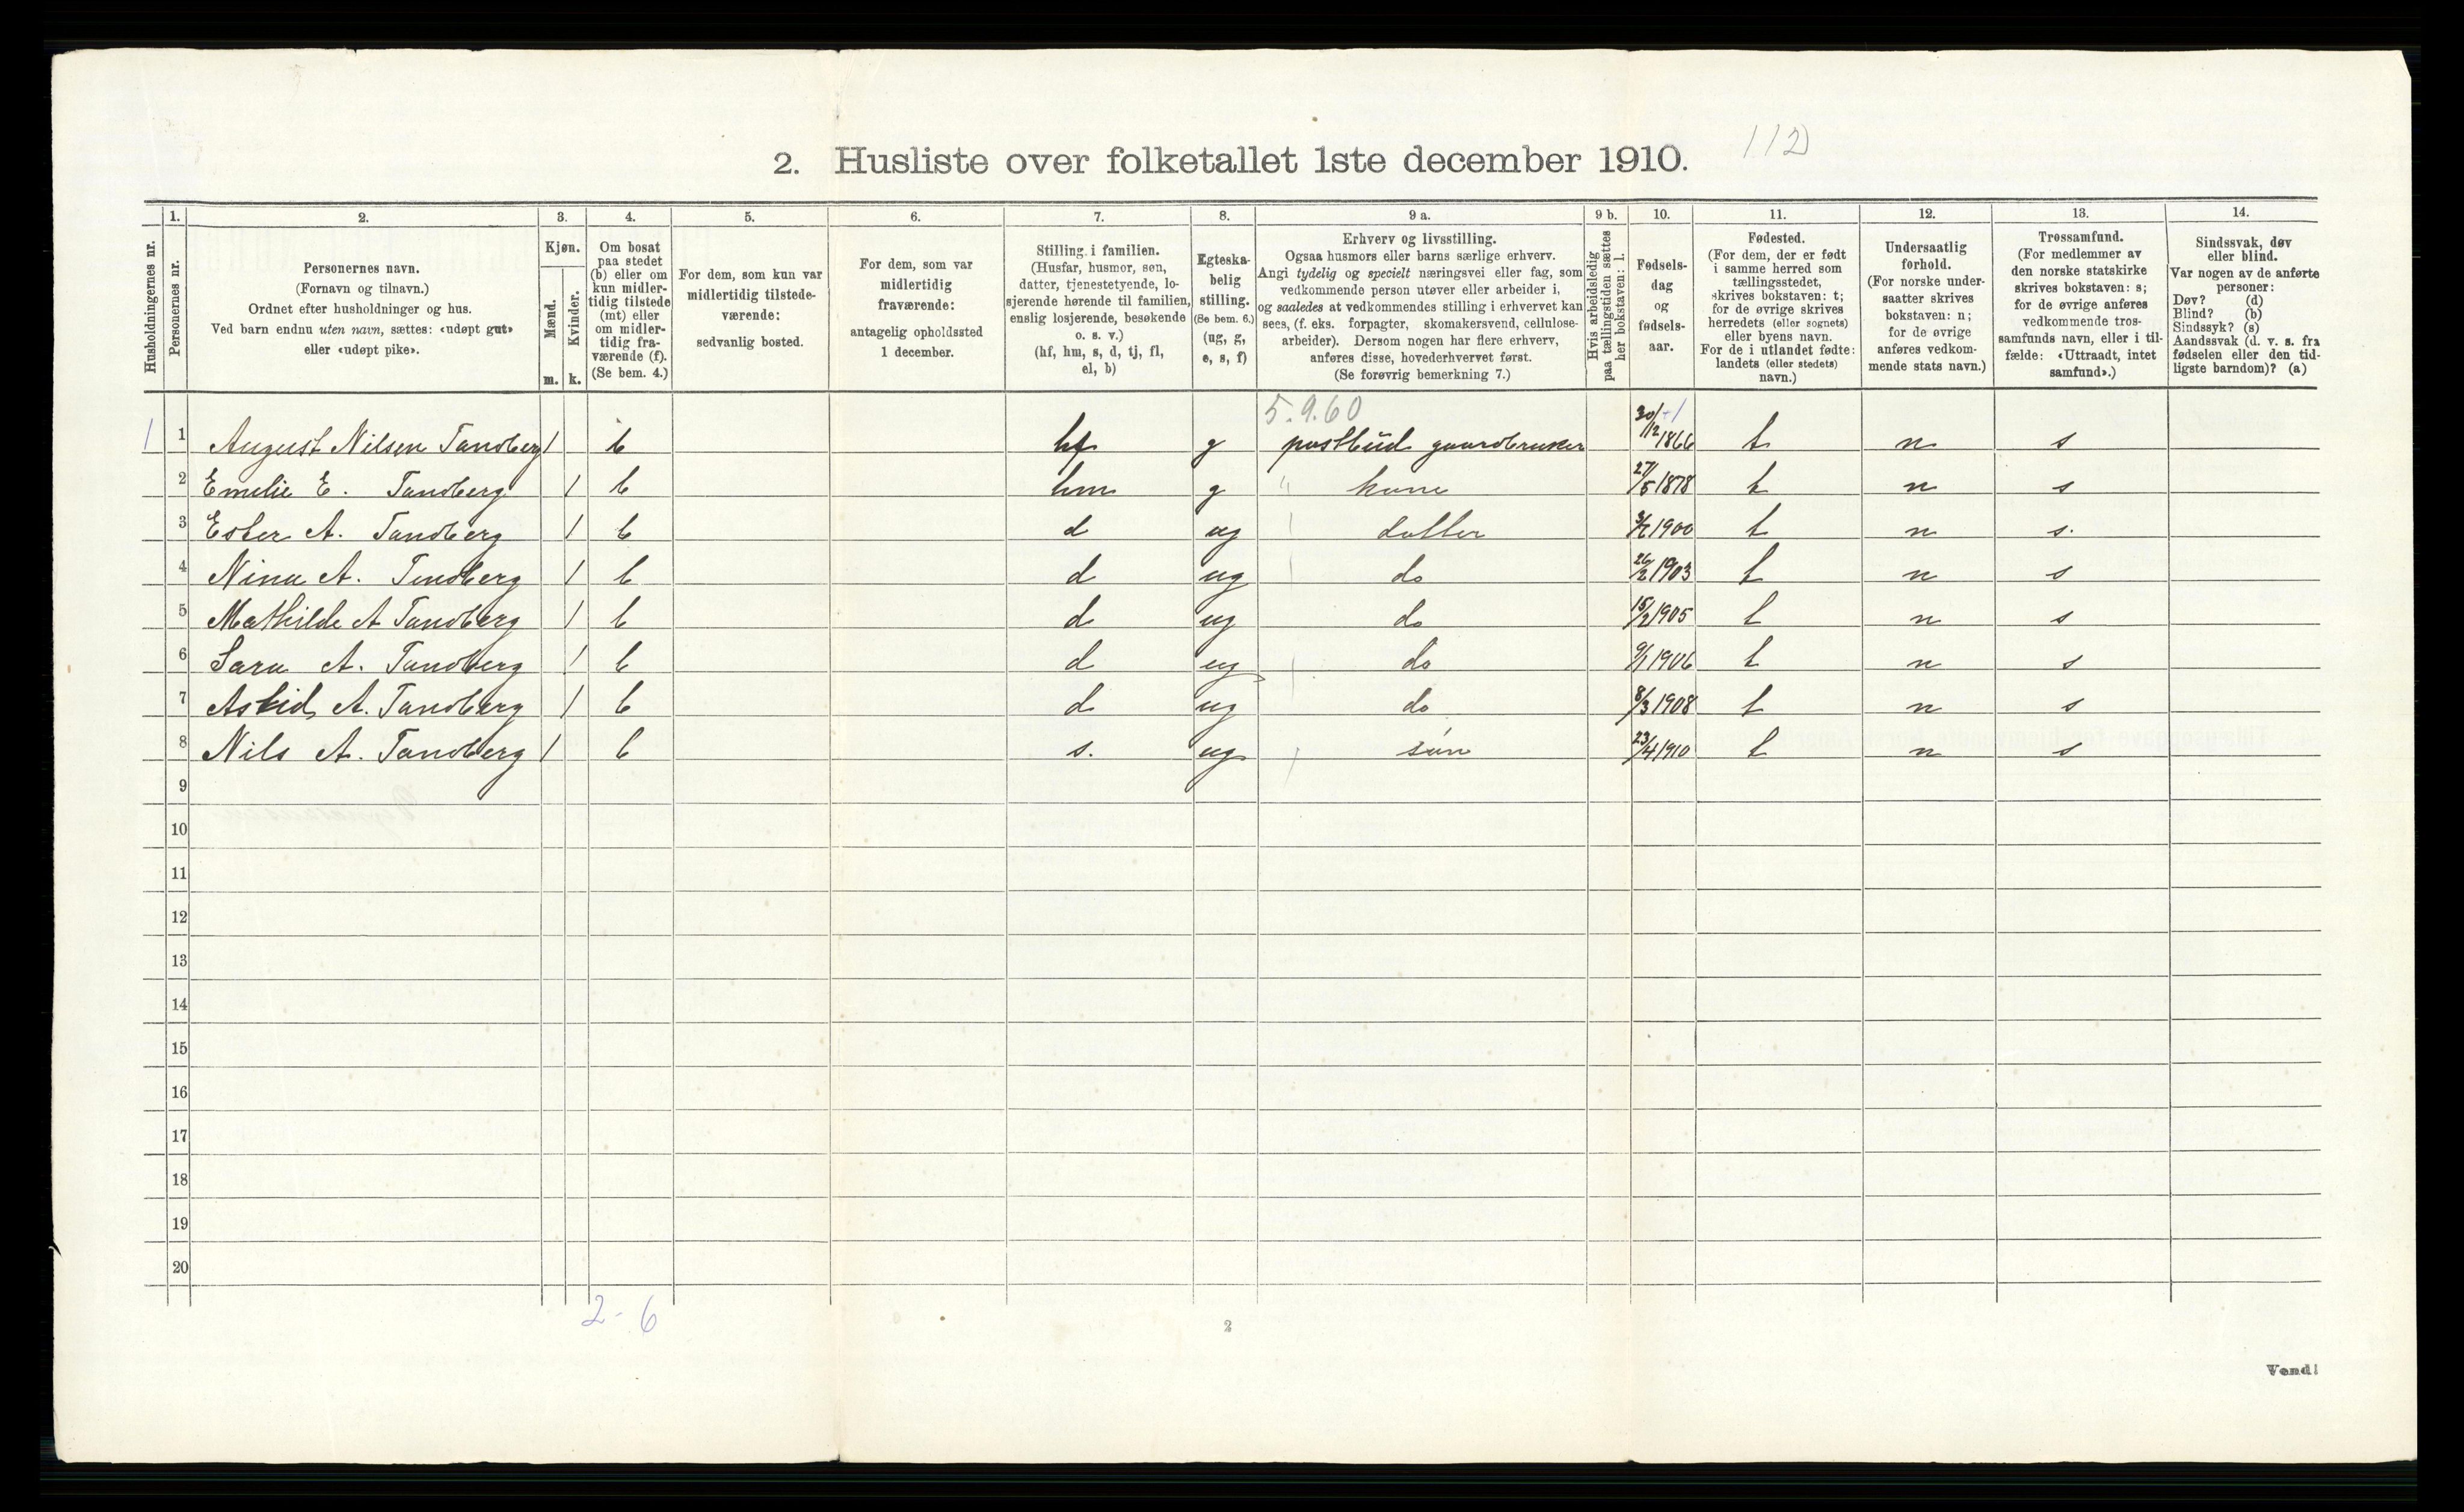 112
2. Husliste over folketallet 1ste december 1910.
Husholdningernes nr.
1. Personernes nr.
2. Personernes navn.
(Fornavn og tilnavn.)
Ordnet efter husholdninger og hus.
Ved barn endnu uten navn, sættes: «udøpt gut»
eller «udøpt pike».
3. Kjøn.
Mænd. m.
Kvinder. k.
4. Om bosat
paa stedet
(b) eller om
kun midler-
tidig tilstede
(mt) eller
om midler-
tidig fra-
værende (f).
(Se bem. 4.)
5. For dem, som kun var
midlertidig tilstede-
værende:
sedvanlig bosted.
6. For dem, som var
midlertidig
fraværende:
antagelig opholdssted
1 december.
7. Stilling i familien.
(Husfar, husmor, søn,
datter, tjenestetyende, lo-
sjerende hørende til familien,
enslig losjerende, besøkende
o. s. v.)
(hf, hm, s, d, tj, fl,
el, b)
8. Egteska-
belig
stilling.
(Se bem. 6.)
(ug, g,
e, s, f)
9 a. Erhverv og livsstilling.
Ogsaa husmors eller barns særlige erhverv.
Angi tydelig og specielt næringsvei eller fag, som
vedkommende person utøver eller arbeider i,
og saaledes at vedkommendes stilling i erhvervet kan
sees, (f. eks. forpagter, skomakersvend, cellulose-
arbeider). Dersom nogen har flere erhverv,
anføres disse, hovederhvervet først.
(Se forøvrig bemerkning 7.)
9 b. Hvis arbeidsledig
paa tællingstiden sættes
her bokstaven: l.
10. Fødsels-
dag
og
fødsels-
aar.
11. Fødested.
(For dem, der er født
i samme herred som
tællingsstedet,
skrives bokstaven: t;
for de øvrige skrives
herredets (eller sognets)
eller byens navn.
For de i utlandet fødte:
landets (eller stedets)
navn.)
12. Undersaatlig
forhold.
(For norske under-
saatter skrives
bokstaven: n;
for de øvrige
anføres vedkom-
mende stats navn.)
13. Trossamfund.
(For medlemmer av
den norske statskirke
skrives bokstaven: s;
for de øvrige anføres
vedkommende tros-
samfunds navn, eller i til-
fælde: «Uttraadt, intet
samfund».)
14. Sindssvak, døv
eller blind.
Var nogen av de anførte
personer:
Døv? (d)
Blind? (b)
Sindssyk? (s)
Aandssvak (d. v. s. fra
fødselen eller den tid-
ligste barndom)? (a)
5.9.60
1 1 August Nilsen Tandberg 1 b hf g postbud gaardbruker 30/12 1866 t n s
2 Emelie E. Tandberg 1 b hm g " kone 27/5 1878 t n s
3 Ester A. Tandberg 1 b d ug datter 3/2 1900 t n s.
4 Nina A. Tandberg 1 b d ug do 26/2 1903 t n s
5 Mathilde A Tandberg 1 b d ug do 15/2 1905 t n s
6 Sara A. Tandberg 1 b d ug do 9/1 1906 t n s
7 Astrid A. Tandberg 1 b d ug do 8/3 1908 t n s
8 Nils A. Tandberg 1 b s. ug sùn 23/4 1910 t n s
9
10
11
12
13
14
15
16
17
18
19
20
2-6
2
Vend!